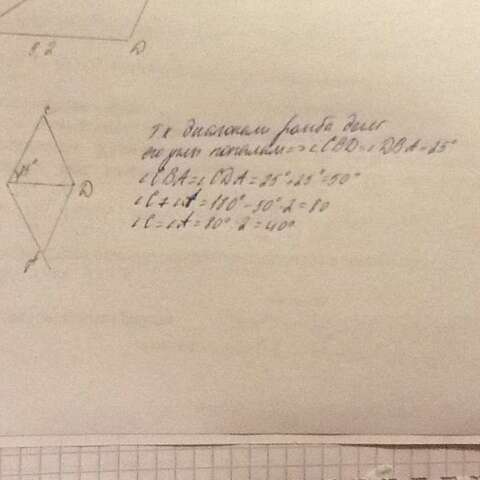 9,2 D
C
25°
D
A
тк диагонали ромба делят
его углы пополам => ∠CBD=∠DBA=25°
∠CBA=∠CDA=25°+25°=50°
∠C+∠A=180°-50°·2=80
∠C=∠A=80°·2=40°